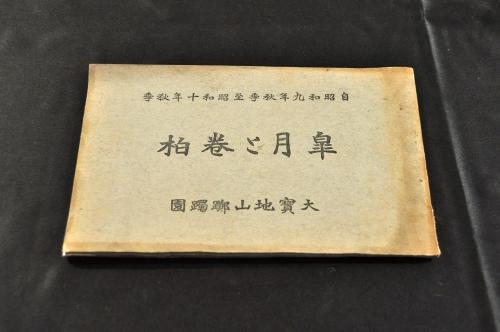 自昭和九年秋季至昭和十年秋季
皐月と巻柏
大寶地山躑躅園